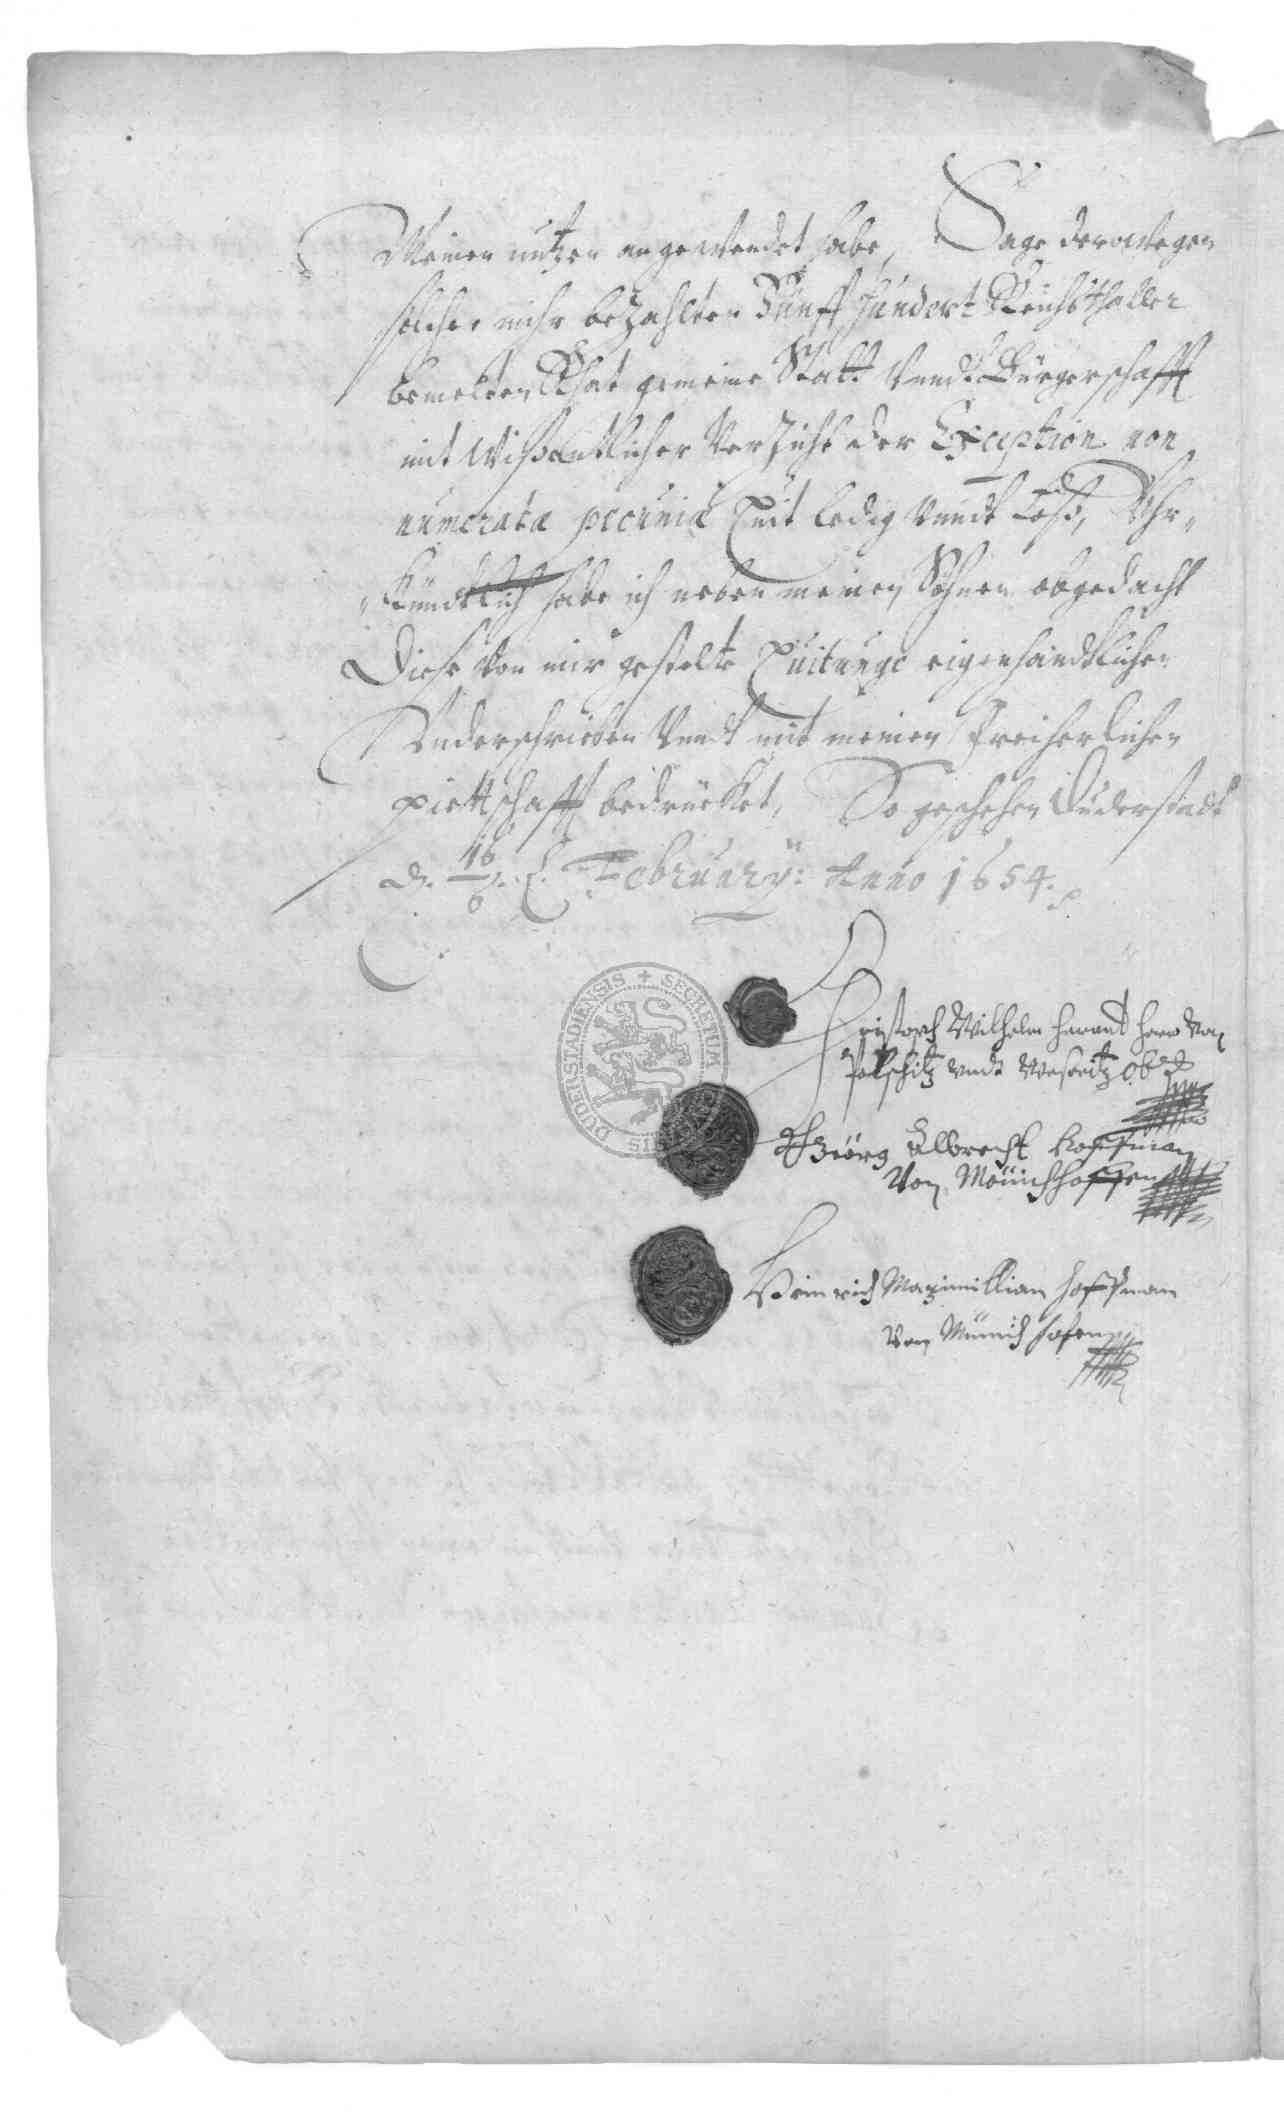 Meinen nutzen angewendet habe, Sage derowegen
solcher mihr bezahlten Fünff hundert Reichsthaller
bemelten Rhat gemeine Statt Vundt Bürgerschafft
mit Wißentlicher Verzicht der Exception non
numerata pecunia Quit ledig Vundt Loß, Uhr„
„kündtlich habe ich neben meinen Söhnen obgedacht
Diese von mir gestelte Quitunge eigenhändtlichen
Underschrieben Vundt mit meinen Freiherlichen
piettschafft bedrücket, So geschehen Duderstadt
d. 16/6. February: Anno 1654.
Christoph Wilhelm harant herr Von
Polschitz undt Weseritz
Geörg Albrecht hoffman
Von Münichhoffen
Heinrich Maximillian hoffman
Von Münichhofen
DUDERSTADIENSIS + SECRETUM